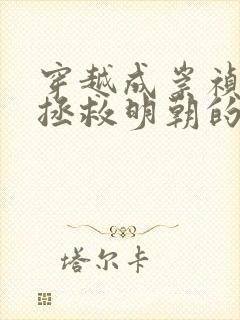 穿越成崇祯
拯救明朝的
塔尔卡